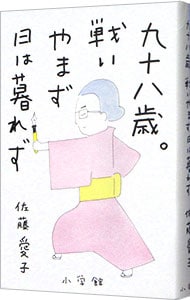 九十八歳。
戦いやまず
日は暮れず
佐藤愛子
小学館